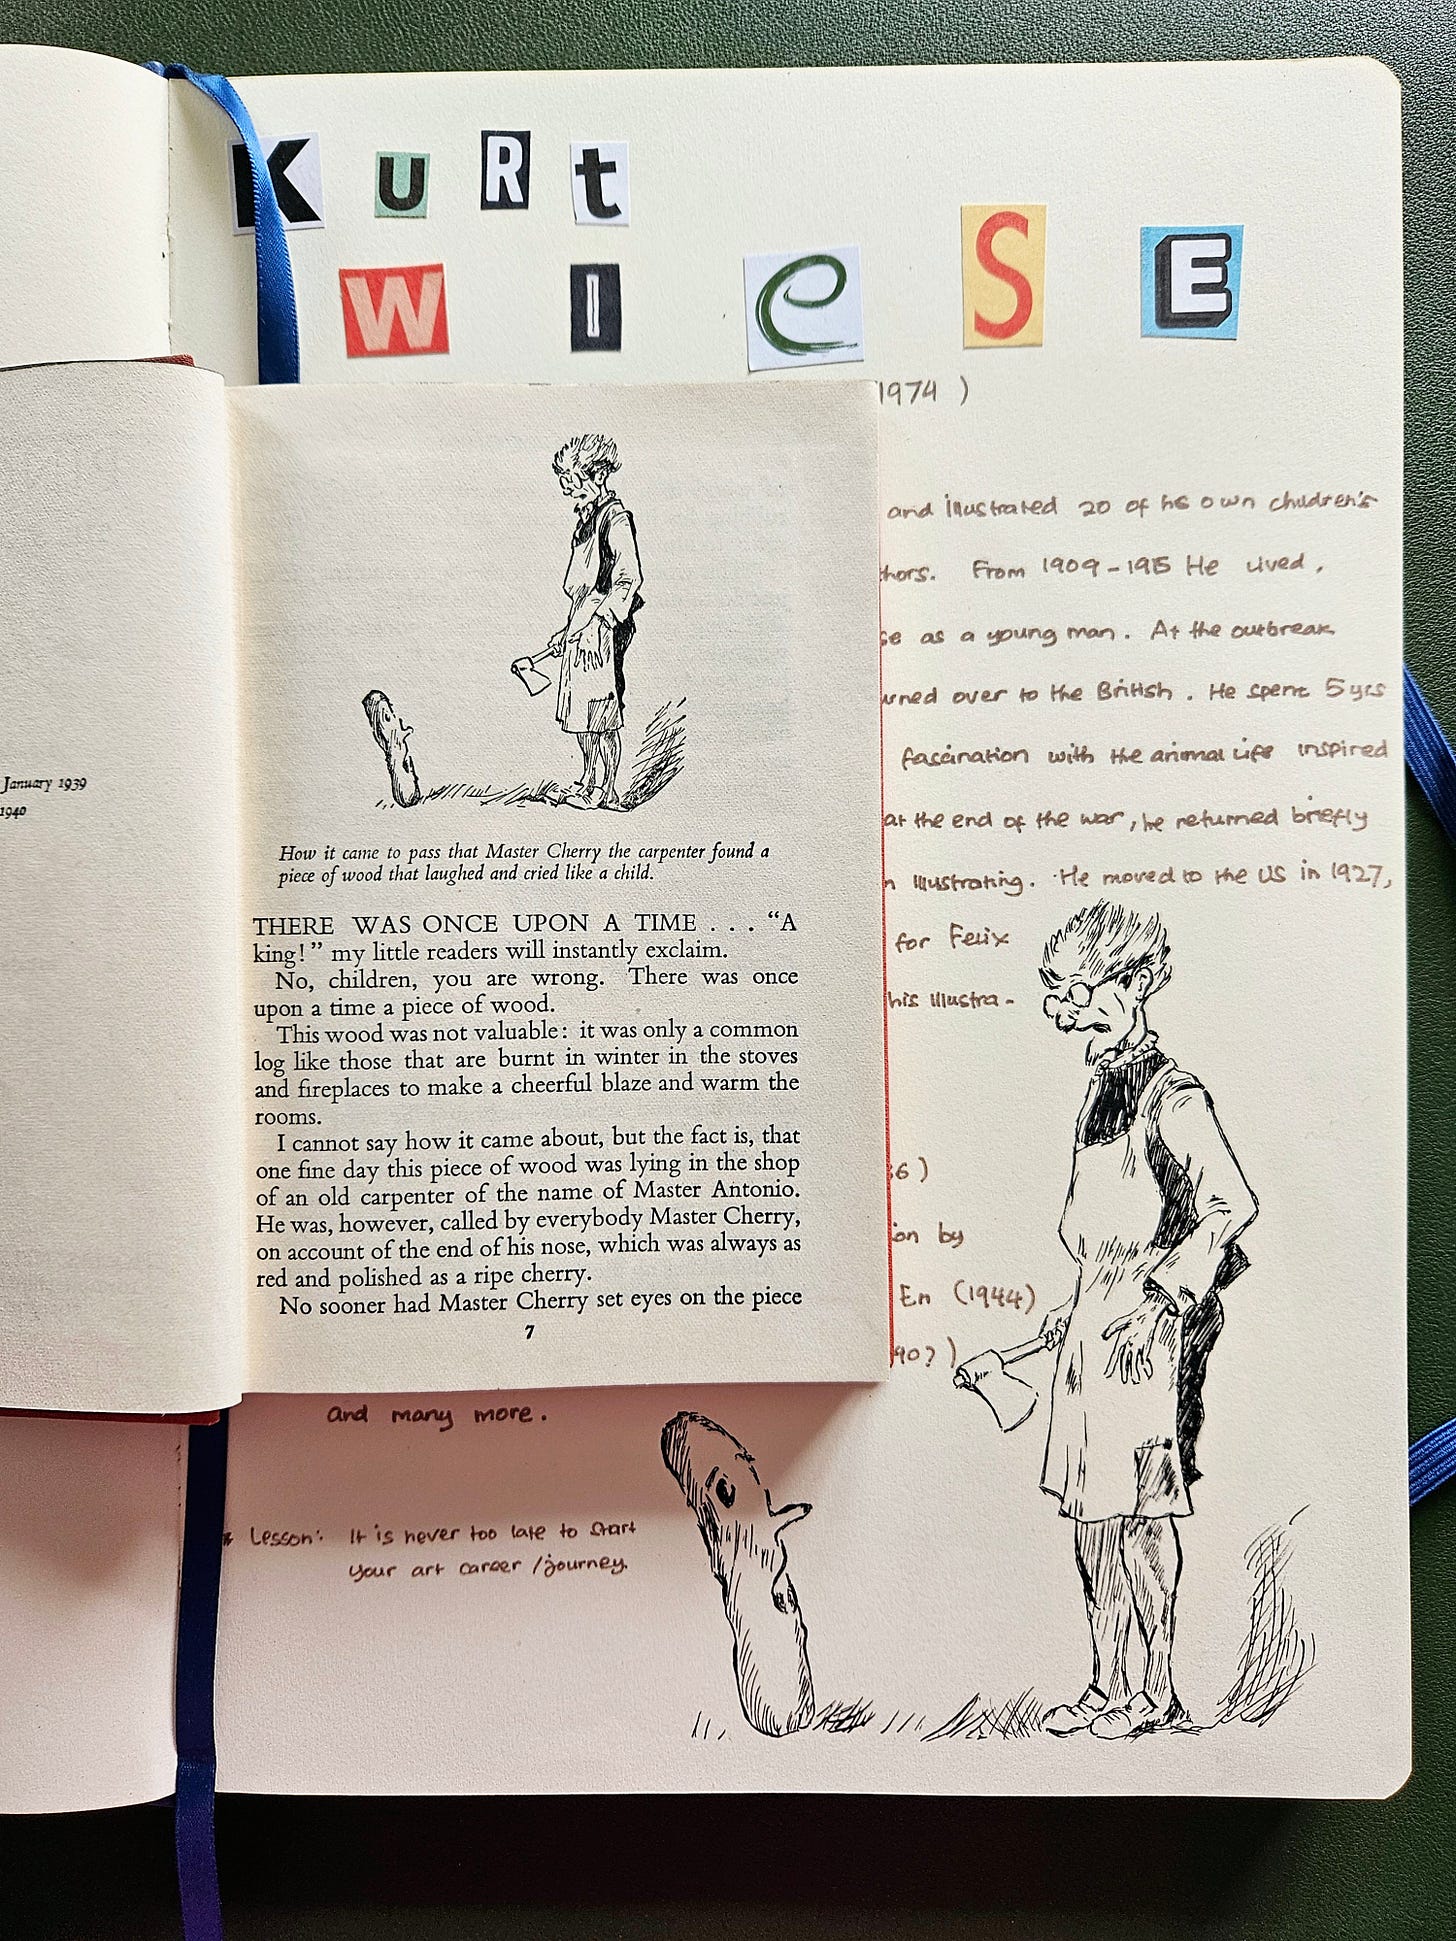 KuRt
WIeSE
1974 )
and illustrated 20 of his own children's
hors. From 1909-1915 He lived,
se as a young man. At the outbreak
rned over to the British. He spent 5 yrs
fascination with the animal life inspired
at the end of the war, he returned briefly
n Illustrating. He moved to the US in 1927,
for Felix
his Illustra-
6)
on by
En (1944)
90?)
and many more.
* Lesson: It is never too late to start
your art career / journey.
January 1939
1940
How it came to pass that Master Cherry the carpenter found a
piece of wood that laughed and cried like a child.
THERE WAS ONCE UPON A TIME . . . “A
king!” my little readers will instantly exclaim.
No, children, you are wrong. There was once
upon a time a piece of wood.
This wood was not valuable: it was only a common
log like those that are burnt in winter in the stoves
and fireplaces to make a cheerful blaze and warm the
rooms.
I cannot say how it came about, but the fact is, that
one fine day this piece of wood was lying in the shop
of an old carpenter of the name of Master Antonio.
He was, however, called by everybody Master Cherry,
on account of the end of his nose, which was always as
red and polished as a ripe cherry.
No sooner had Master Cherry set eyes on the piece
7